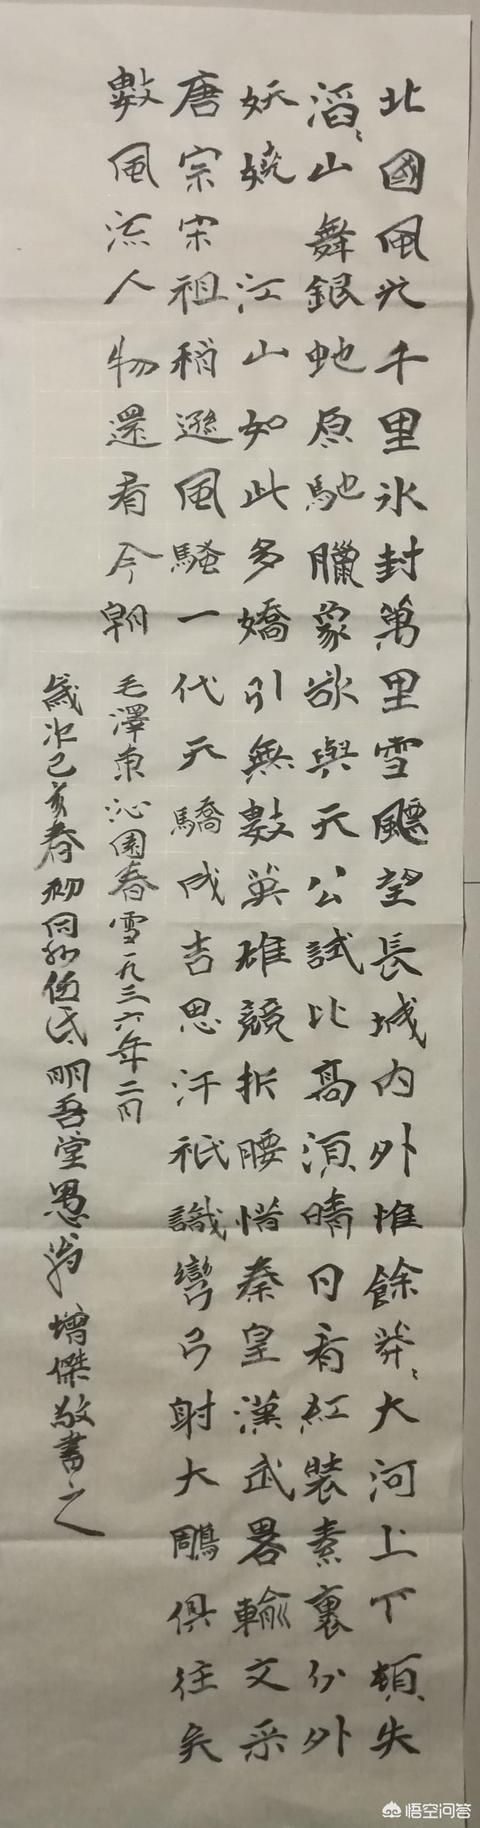 北國風光千里冰封萬里雪飄望長城內外惟餘莽〻大河上下頓失
滔〻山舞銀蛇原馳臘象欲與天公試比高須晴日看紅裝素裹分外
妖嬈　江山如此多嬌引無數英雄競折腰惜秦皇漢武畧輸文采
唐宗宋祖稍遜風騷一代天驕成吉思汗祇識彎弓射大鵰俱往矣
數風流人物還看今朝
毛澤東沁園春雪一九三六年二月
歲次己亥春初同孙伍氏明吾堂愚翁增傑敬書之
悟空问答